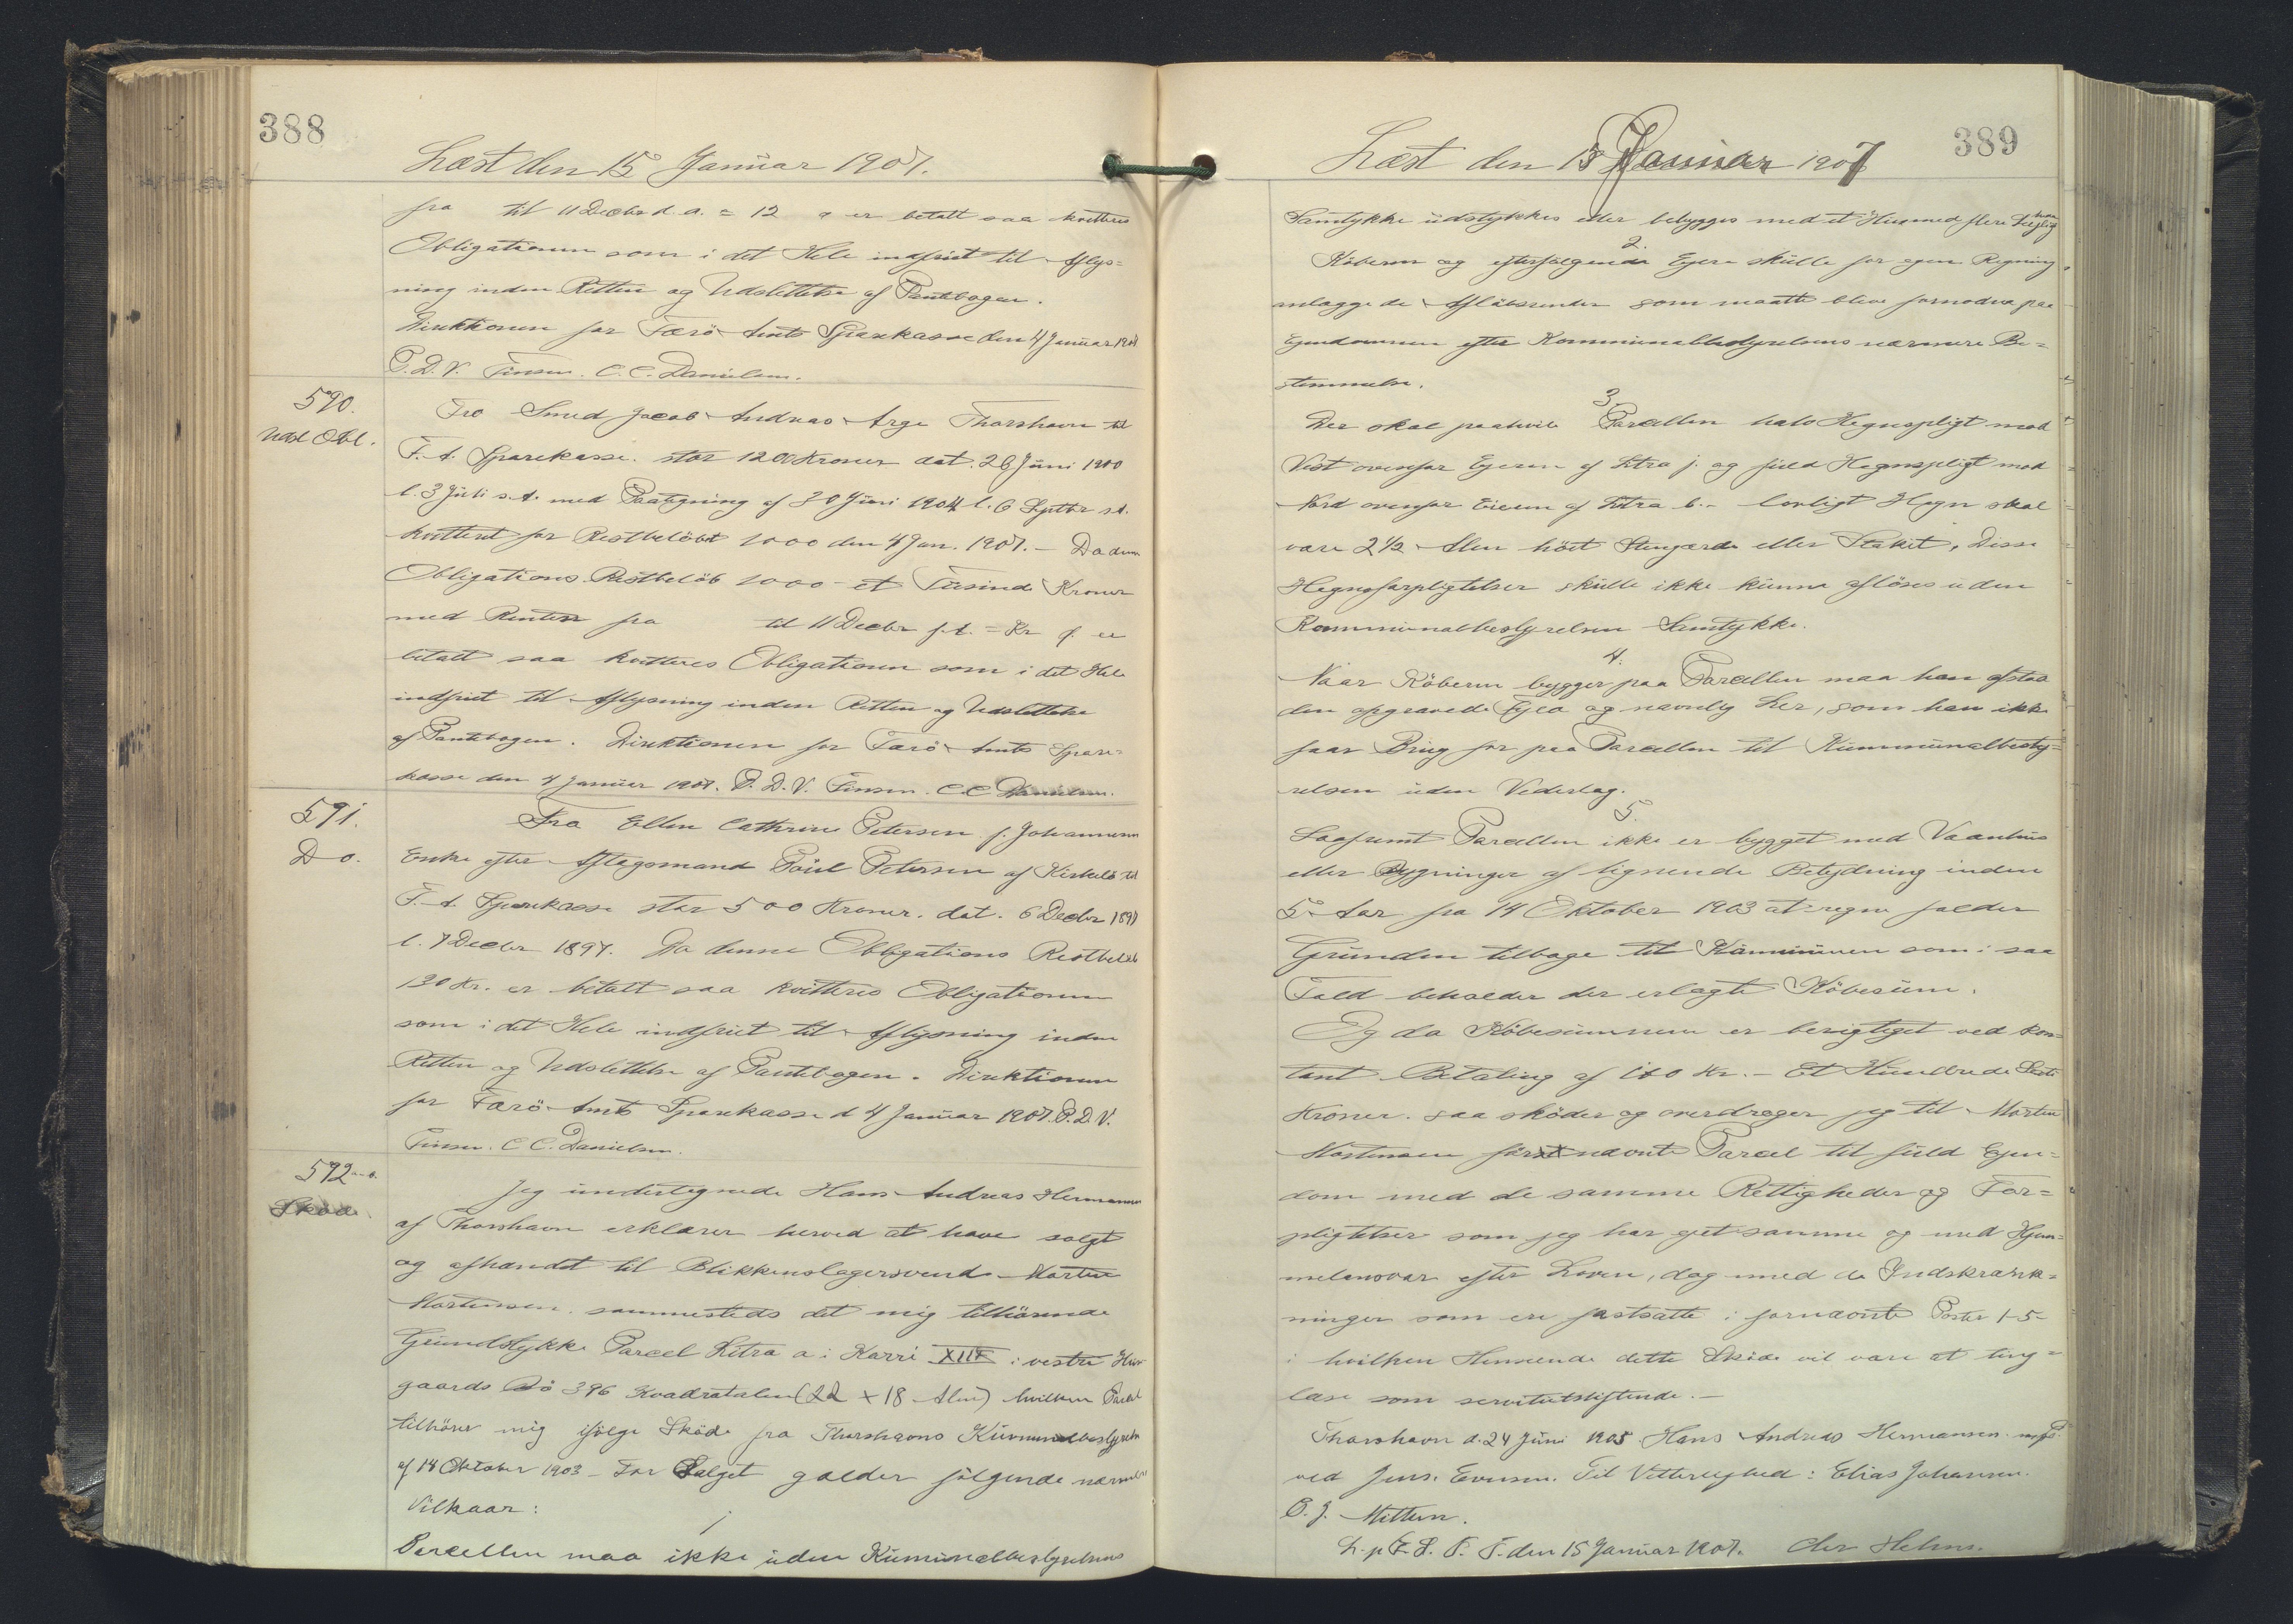 388
Læst den 15 Januar 1907.
fra til 11 Decbr d. a. = 12 er betalt saa kvitteres
Obligationen som i det Hele indfriet til Aflys=
ning inden Retten og Udslettelse af Pantebogen.
Direktionen for Færö Amts Sparekasse den 4 Januar 1907
P.D.V. Finsen. C.C. Danielsen.
590.
Udsl Obl.
Fra Smed Jacob Andreas Arge Thorshavn til
F. A. Sparekasse. stor 1200 Kroner dat. 26 Juni 1900
l. 3 Juli s. A. med Paategning af 30 Juni 1904 l. 6 Septbr s. A.
kvitteret for Restbelöbet 1000 den 4 Jan. 1907. – Da denne
Obligations Restbelöb 1000 – et Tusinde Kroner
med Renter fra til 11 Decbr f. A. = Kr er
betalt saa kvitteres Obligationen som i det Hele
indfriet til Aflysning inden Retten og Udslettelse
af Pantebogen. Direktionen for Færö Amts Spare=
kasse den 4 Januar 1907. P.D.V. Finsen. C.C. Danielsen.
591.
Do.
Fra Ellen Cathrine Petersen f. Johannesen
Enke efter Aftægsmand Poul Petersen af Kirkebö til
F. A. Sparekasse stor 500 Kroner. dat. 6 Decbr 1897
l. 7 Decbr 1897. Da denne Obligations Restbelöb
130 Kr. er betalt saa kvitteres Obligationen
som i det Hele indfriet til Aflysning inden
Retten og Udslettelse af Pantebogen. Direktionen
for Færö Amts Sparekasse d 4 Januar 1907. P.D.V.
Finsen. C C. Danielsen.
592
Sköde
Jeg undertegnede Hans Andreas Hermansen
af Thorshavn erklærer herved at have solgt
og afhændet til Blikkenslagersvend Morten
Mortensen sammesteds det mig tilhörende
Grundstykke Parcel Litra a i Karré XIII i vestre
gaards Bö 396 Kvadratalen (22 x 18 Alen) hvilken Parcel
tilhörer mig ifölge Sköde fra Thorshavns Kommunalbestyrelse
af 14 Oktober 1903 – For Salget gælder fölgende nærmere
Vilkaar:
1
Parcellen maa ikke uden Kommunalbestyrelsens
389
Læst den 15 Januar 1907
Samtykke udstykkes eller bebygges med et Hus med flere
2.
Köberen og efterfölgende Ejere skulle for egen Regning
anlægge de Aflöbsrender som maatte blive fornödne paa
Ejendommen efter Kommunalbestyrelsens nærmere Be=
stemmelse.
3.
Der skal paahvile Parcellen halv Hegnspligt mod
Vest overfor Ejeren af Litra j. og fuld Hegnspligt mod
Nord overfor Eieren af Litra b. – lovligt Hegn skal
være 2½ Alen höit Stengærde eller Stakit. Disse
Hegnsforpligtelser skulle ikke kunne aflöses uden
Kommunalbestyrelsen Samtykke.
4.
Naar Köberen bygger paa Parcellen maa han afstaa
den opgravede Fyld og navnlig Ler, som han ikke
faar Brug for paa Parcellen til Kommunalbesty=
relsen uden Vederlag.
5.
Saafremt Parcellen ikke er bygget med Vaanhus
eller Bygninger af lignende Betydning inden
5 Aar fra 14 Oktober 1903 at regne falder
Grunden tilbage til Kommunen som i saa
Fald beholder der erlagte Köbesum.
Og da Köbesummen er berigtiget ved kon=
tant Betaling af 160 Kr. – Et Hundrede Seksti
Kroner. saa sköder og overdrager jeg til Morten
Mortensen förnævnte Parcel til fuld Ejen=
dom med de samme Rettigheder og For=
pligtelser som jeg har ejet samme og med Hjem=
melansvar efter Loven, dog med de Indskrænk=
ninger som ere fastsatte i fornævnte Poster 1-5 –
i hvilken Henseende dette Sköde vil være at ting=
læse som servitutstiftende. –
Thorshavn d. 24 Juni 1905 Hans Andreas Hermansen m.f.P.
ved Jens Evensen. Til Vitterlighed: Elias Johansen.
O. J. Mittun.
L. p. F. S. T. T. den 15 Januar 1907. Chr Helms.